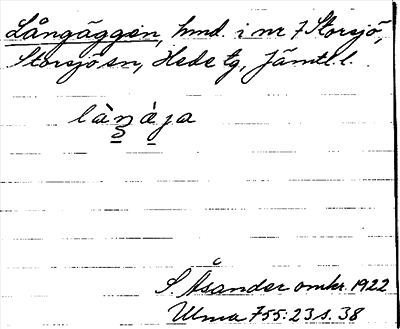 Långäggen, hmd. i nr 7 Storsjö,
Storsjö sn, Hede tg, Jämtl. l.
S. Åsander omkr. 1922
Ulma 755:23 s. 38